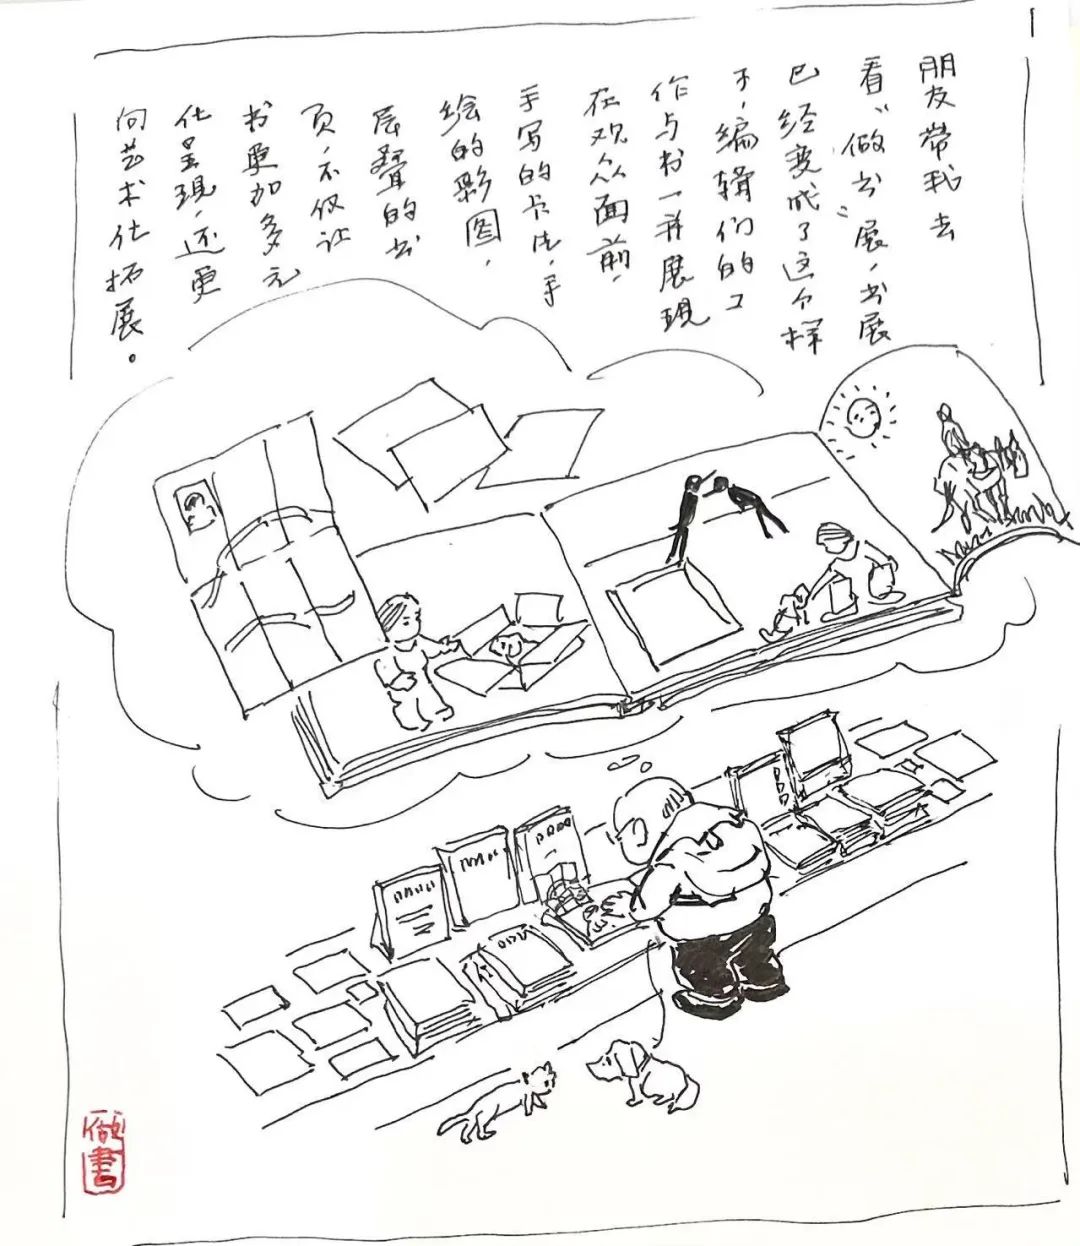 朋友带我去
看“做书”展,书展
已经变成了这个样
子,编辑们的工
作与书一并展現
在观众面前,
手写的卡片,手
绘的彩图,
层叠的书
页,不仅让
书更加多元
化呈現,还更
向艺术化拓展。
做書